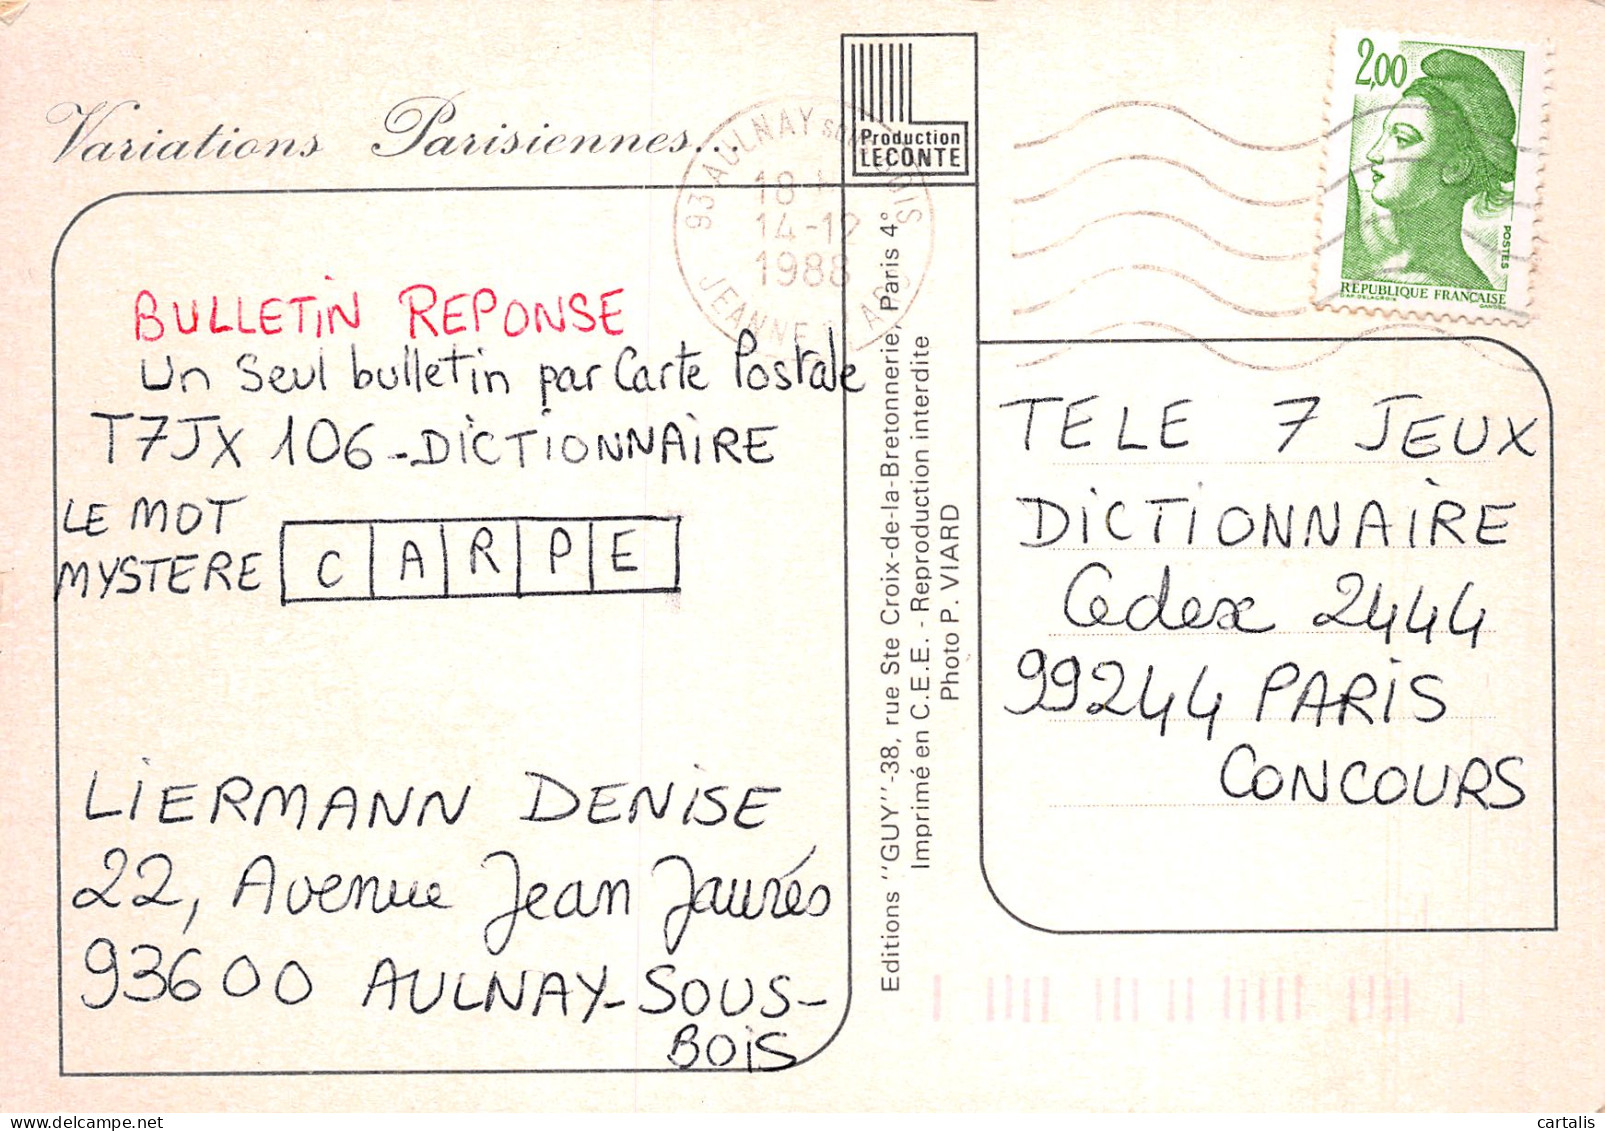 Variations Parisiennes...
Production
LECONTE
93 AULNAY SOUS BOIS
18 H
14-12
1988
JEANNE D'ARC
2,00
POSTES
RÉPUBLIQUE FRANÇAISE
D'AP. DELACROIX GANDON
BULLETIN REPONSE
Un Seul bulletin par Carte Postale
T7JX 106-DICTIONNAIRE
LE MOT
MYSTERE C A R P E
LIERMANN DENISE
22, Avenue Jean Jaurés
93600 AULNAY-SOUS-
BOIS
Editions "GUY"-38, rue Ste Croix-de-la-Bretonnerie, Paris 4°
Imprimé en C.E.E. - Reproduction interdite
Photo P. VIARD
TELE 7 JEUX
DICTIONNAIRE
Cedex 2444
99244 PARIS
CONCOURS
cartalis